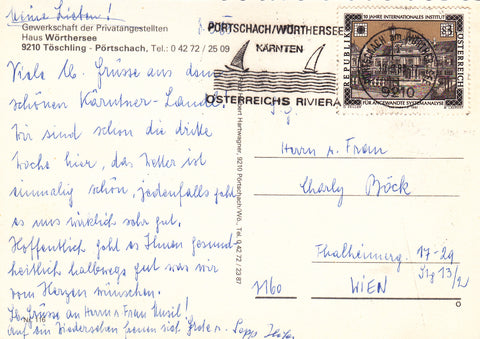 Meine Lieben!
Gewerkschaft der Privatangestellten
Haus Wörthersee
9210 Töschling - Pörtschach, Tel.: 0 42 72 / 25 09
Viele lb. Grüsse aus dem
schönen Kärntner-Landl!
Wir sind schon die dritte
Woche hier, das Wetter ist
einmalig schön, jedenfalls geht
es uns wirklich sehr gut.
Hoffentlich geht es Ihnen gesund-
heitlich halbwegs gut was wir
vom Herzen wünschen.
Lb. Grüsse an Herrn u. Frau Musil!
Auf ein Wiedersehen freuen sich Grete u. Sepp
Nr. 116
Herbert Hartwagner, 9210 Pörtschach/WS., Tel. 0 42 72 / 23 87
PÖRTSCHACH/WÖRTHERSEE
KÄRNTEN
ÖSTERREICHS RIVIERA
10 JAHRE INTERNATIONALES INSTITUT
REPUBLIK
ÖSTERREICH
S 3
9210
FÜR ANGEWANDTE SYSTEMANALYSE
Herrn u. Frau
Charly Böck
Thalheimerg. 17-29
Stg 13/2
1160 WIEN